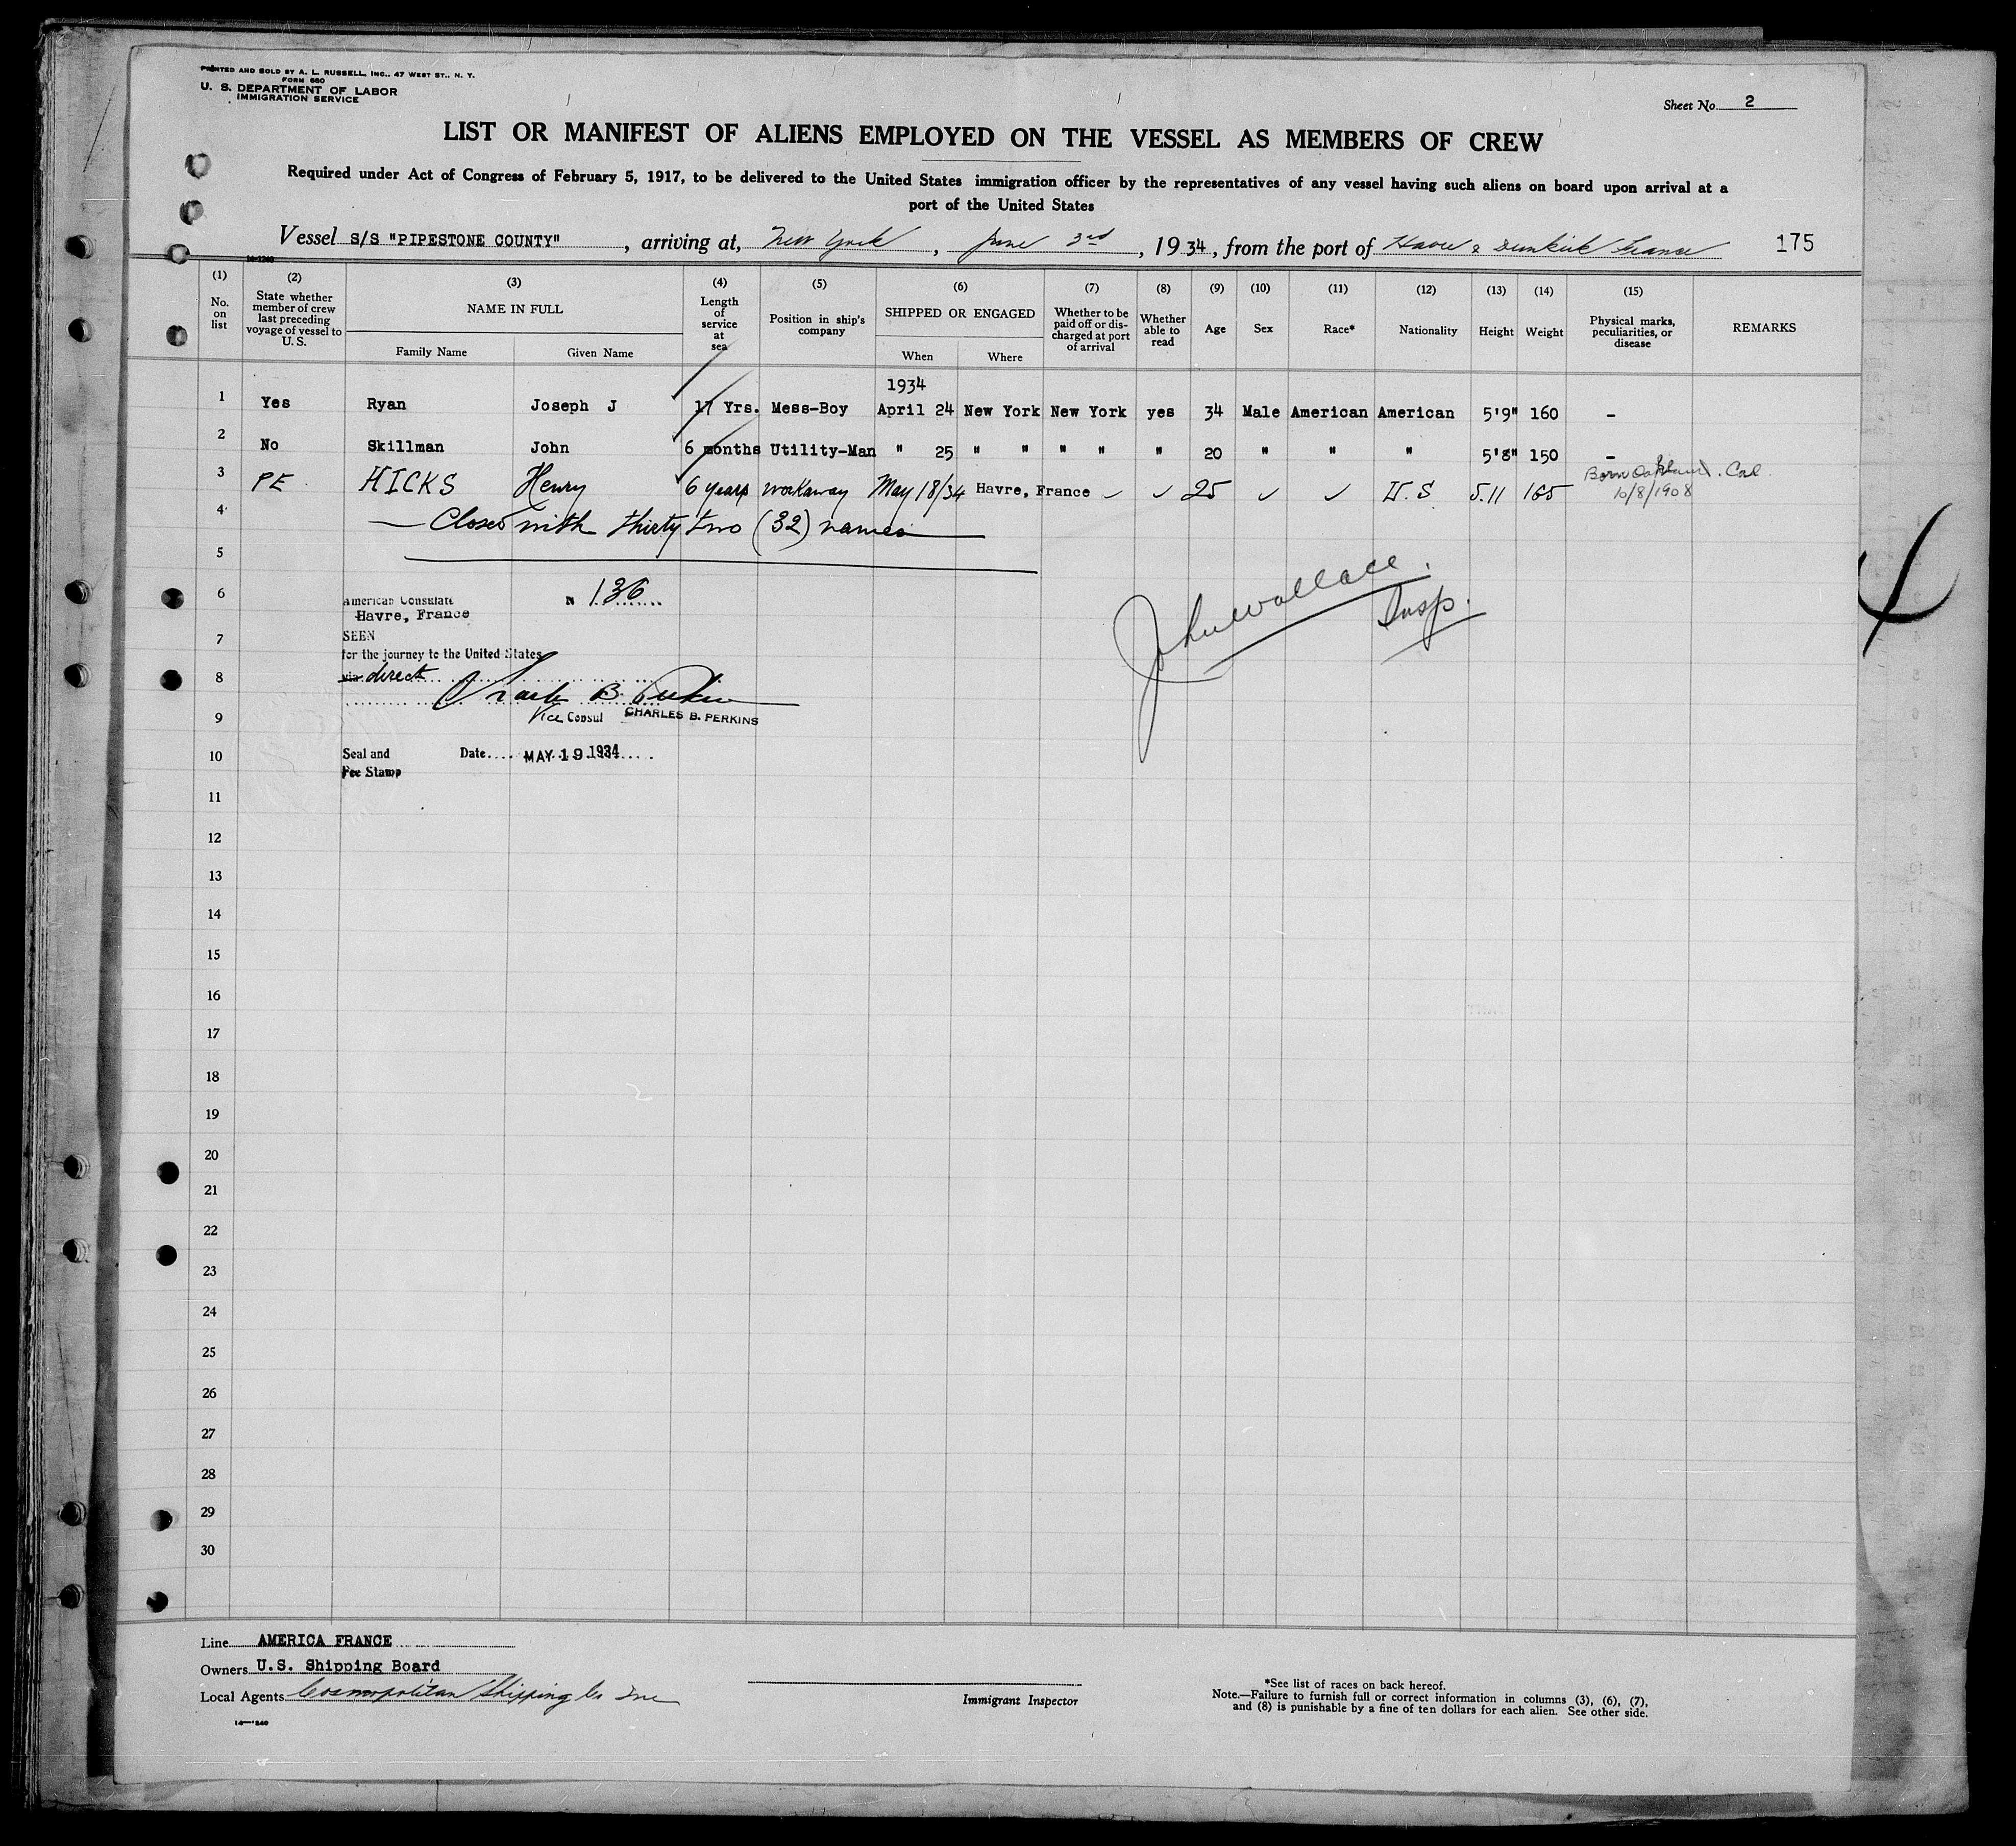 PRINTED AND SOLD BY A. L. RUSSELL, INC., 47 WEST ST., N. Y.
FORM 680
U. S. DEPARTMENT OF LABOR
IMMIGRATION SERVICE
Sheet No. 2
LIST OR MANIFEST OF ALIENS EMPLOYED ON THE VESSEL AS MEMBERS OF CREW
Required under Act of Congress of February 5, 1917, to be delivered to the United States immigration officer by the representatives of any vessel having such aliens on board upon arrival at a
port of the United States
Vessel S/S "PIPESTONE COUNTY", arriving at, New York, June 3rd, 1934, from the port of Havre & Dunkirk France 175
(1) No. on list
(2) State whether member of crew last preceding voyage of vessel to U. S.
(3) NAME IN FULL Family Name Given Name
(4) Length of service at sea
(5) Position in ship's company
(6) SHIPPED OR ENGAGED When Where
(7) Whether to be paid off or discharged at port of arrival
(8) Whether able to read
(9) Age
(10) Sex
(11) Race*
(12) Nationality
(13) Height
(14) Weight
(15) Physical marks, peculiarities, or disease
REMARKS
1934
1 Yes Ryan Joseph J 17 Yrs. Mess-Boy April 24 New York New York yes 34 Male American American 5'9" 160 -
2 No Skillman John 6 months Utility-Man " 25 " " " " " 20 " " " 5'8" 150 -
3 PE HICKS Henry 6 years workaway May 18/34 Havre, France ✓ ✓ 25 ✓ ✓ U.S 5.11 165 Born Oakland. Cal
10/8/1908
4 — Closed with thirty two (32) names —
5
6 American Consulate N 136
Havre, France
7 SEEN
for the journey to the United States
8 via direct
Charles B. Perkins
9 Vice Consul CHARLES B. PERKINS
10 Seal and Date MAY 19 1934
Fee Stamp
John Wallace.
Insp.
11
12
13
14
15
16
17
18
19
20
21
22
23
24
25
26
27
28
29
30
Line AMERICA FRANCE
Owners U.S. Shipping Board
Local Agents Cosmopolitan Shipping Co Inc
Immigrant Inspector
*See list of races on back hereof.
Note.—Failure to furnish full or correct information in columns (3), (6), (7),
and (8) is punishable by a fine of ten dollars for each alien. See other side.